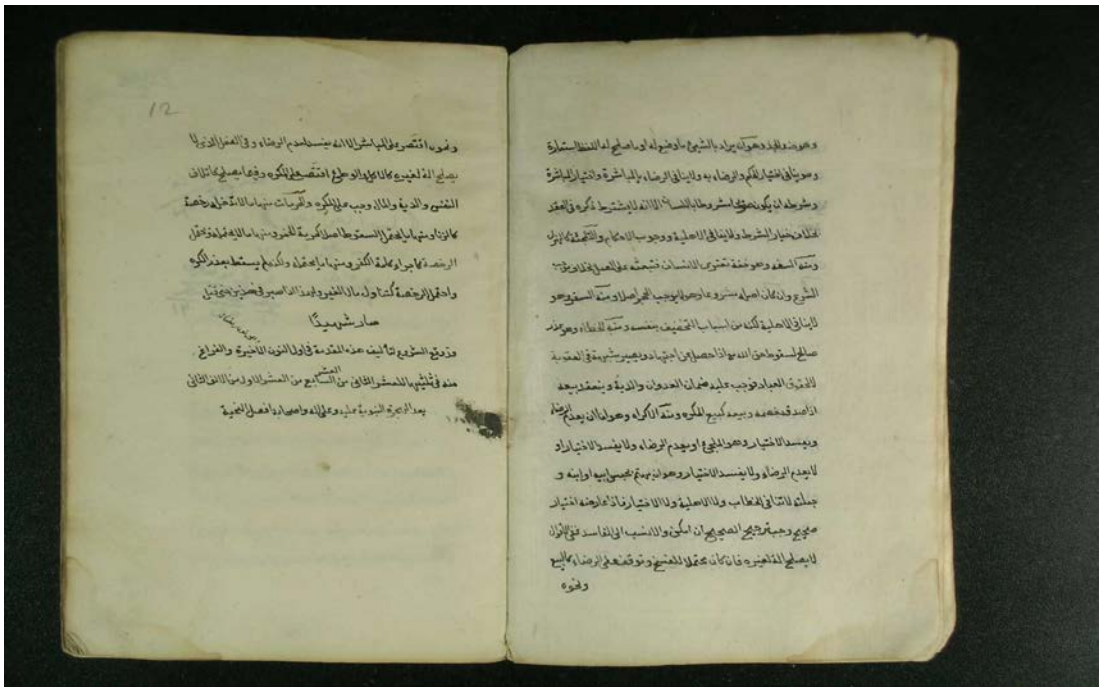 وهو ضد الجد وهو ان يراد بالشيئ ما وضع له او ما صلح له اللفظ استعارة
وهو ينافي اختيار الحكم والرضاء به ولا ينافي الرضاء بالمباشرة واختيار المباشرة
وشرطه ان يكون صريحا مشروطا باللسان الا انه لا يشترط ذكره في العقد
بخلاف خيار الشرط ولا ينافي الاهلية ووجوب الاحكام والتلجئة كالهزل
ومنه السفه وهو خفة تعتري الانسان فتبعثه على العمل بخلاف موجب
الشرع وان كان اصله مشروعا وهو لا يوجب الحجر اصلا ومنه السفر وهو
لا ينافي الاهلية لكنه من اسباب التخفيف بنفسه ومنه الخطاء وهو عذر
صالح لسقوط حق الله تع اذا حصل عن اجتهاد ويصير شبهة في العقوبة
لا لحقوق العباد فوجب عليه ضمان العدوان والدية وينعقد بيعه
اذا صدقه خصمه وبيعه كبيع المكره ومنه الاكراه وهو اما ان يعدم الرضاء
ويفسد الاختيار وهو الملجئ او يعدم الرضاء ولا يفسد الاختيار او
لا يعدم الرضاء ولا يفسد الاختيار وهو ان يهتم بحبس ابيه او ابنه و
جملته لا تنافي الخطاب ولا الاهلية ولا الاختيار فاذا عارضه اختيار
صحيح وجب ترجيح الصحيح ان امكن والا نسب الى الفاسد ففي الاقوال
لا يصلح الة لغيره فان كان محتملا للفسخ وتوقف على الرضاء كالبيع
ونحوه
12
ونحوه اقتصر على المباشر الا انه يفسد لعدم الرضاء وفي الفعل الذي لا
يصلح الة لغيره كالاكل والوطئ اقتصر على المكره وفيما يصلح كاتلاف
النفس والدية والمال وجب على المكره والحرمات منها ما لا تدخله رخصة
كالزنا ومنها ما يحتمل السقوط اصلا كحرمة الخمر ومنها ما لا يحتمله ويحتمل
الرخصة كاجراء كلمة الكفر ومنها ما يحتمله ولكنه لم يسقط بعذر الكره
واحتمل الرخصة كتناول مال الغير ولهذا اذا صبر في هذين حتى قتل
صار شهيدا
وقد وقع الشروع لتأليف هذه المقدمة في اولى النون الاخيرة والفراغ
منه في ثلثيها للعشر الثاني من العشر السابع من العشر الاول من الالف الثاني
بعد الهجرة النبوية عليه وعلى اله واصحابه افضل التحية